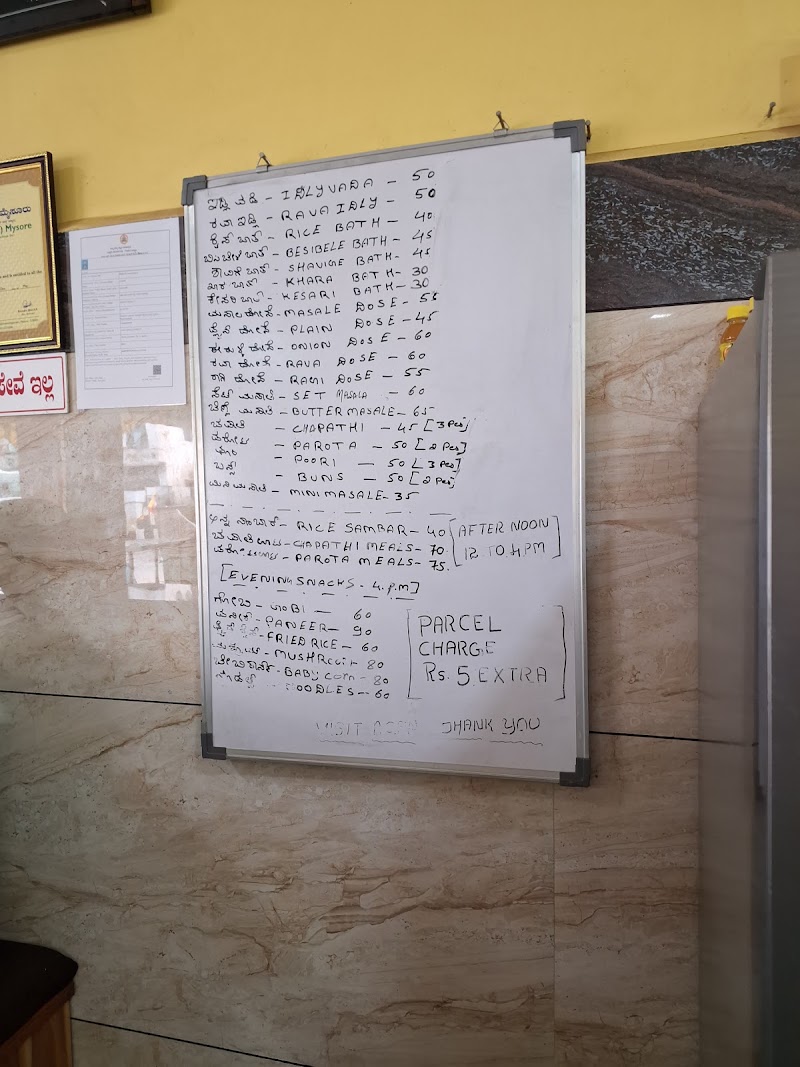 ಮೈಸೂರು
) Mysore
ಸೇವೆ ಇಲ್ಲ
ಇಡ್ಲಿ ವಡೆ - IDLYVADA - 50
ರವಾ ಇಡ್ಲಿ - RAVA IDLY - 50
ರೈಸ್ ಬಾತ್ - RICE BATH - 40
ಬಿಸಿಬೇಳೆ ಬಾತ್ - BESIBELE BATH - 45
ಶಾವಿಗೆ ಬಾತ್ - SHAVIGE BATH - 45
ಖಾರ ಬಾತ್ - KHARA BATH - 30
ಕೇಸರಿ ಬಾತ್ - KESARI BATH - 30
ಮಸಾಲ ದೋಸೆ - MASALE DOSE - 55
ಪ್ಲೈನ್ ದೋಸೆ - PLAIN DOSE - 45
ಈರುಳ್ಳಿ ದೋಸೆ - ONION DOSE - 60
ರವಾ ದೋಸೆ - RAVA DOSE - 60
ರಾಗಿ ದೋಸೆ - RAGI DOSE - 55
ಸೆಟ್ ಮಸಾಲೆ - SET MASALA - 60
ಬೆಣ್ಣೆ ಮಸಾಲೆ - BUTTER MASALE - 65
ಚಪಾತಿ - CHAPATHI - 45 [3 Pcs]
ಪರೋಟ - PAROTA - 50 [2 Pcs]
ಪೂರಿ - POORI - 50 [3 Pcs]
ಬನ್ಸ್ - BUNS - 50 [2 Pcs]
ಮಿನಿ ಮಸಾಲೆ - MINI MASALE - 35
ಅನ್ನ ಸಾಂಬಾರ್ - RICE SAMBAR - 40
ಚಪಾತಿ ಊಟ - CHAPATHI MEALS - 70
ಪರೋಟ ಊಟ - PAROTA MEALS - 75
[AFTER NOON
12 TO 4PM]
[EVENING SNACKS - 4. P.M]
ಗೋಬಿ - GOBI - 60
ಪನೀರ್ - PANEER - 90
ಫ್ರೈಡ್ ರೈಸ್ - FRIED RICE - 60
ಮಶ್ರೂಮ್ - MUSHROOM - 80
ಬೇಬಿಕಾರ್ನ್ - BABY CORN - 80
ನೂಡಲ್ಸ್ - NOODLES - 60
[PARCEL
CHARGE
Rs. 5 EXTRA]
VISIT THANK YOU